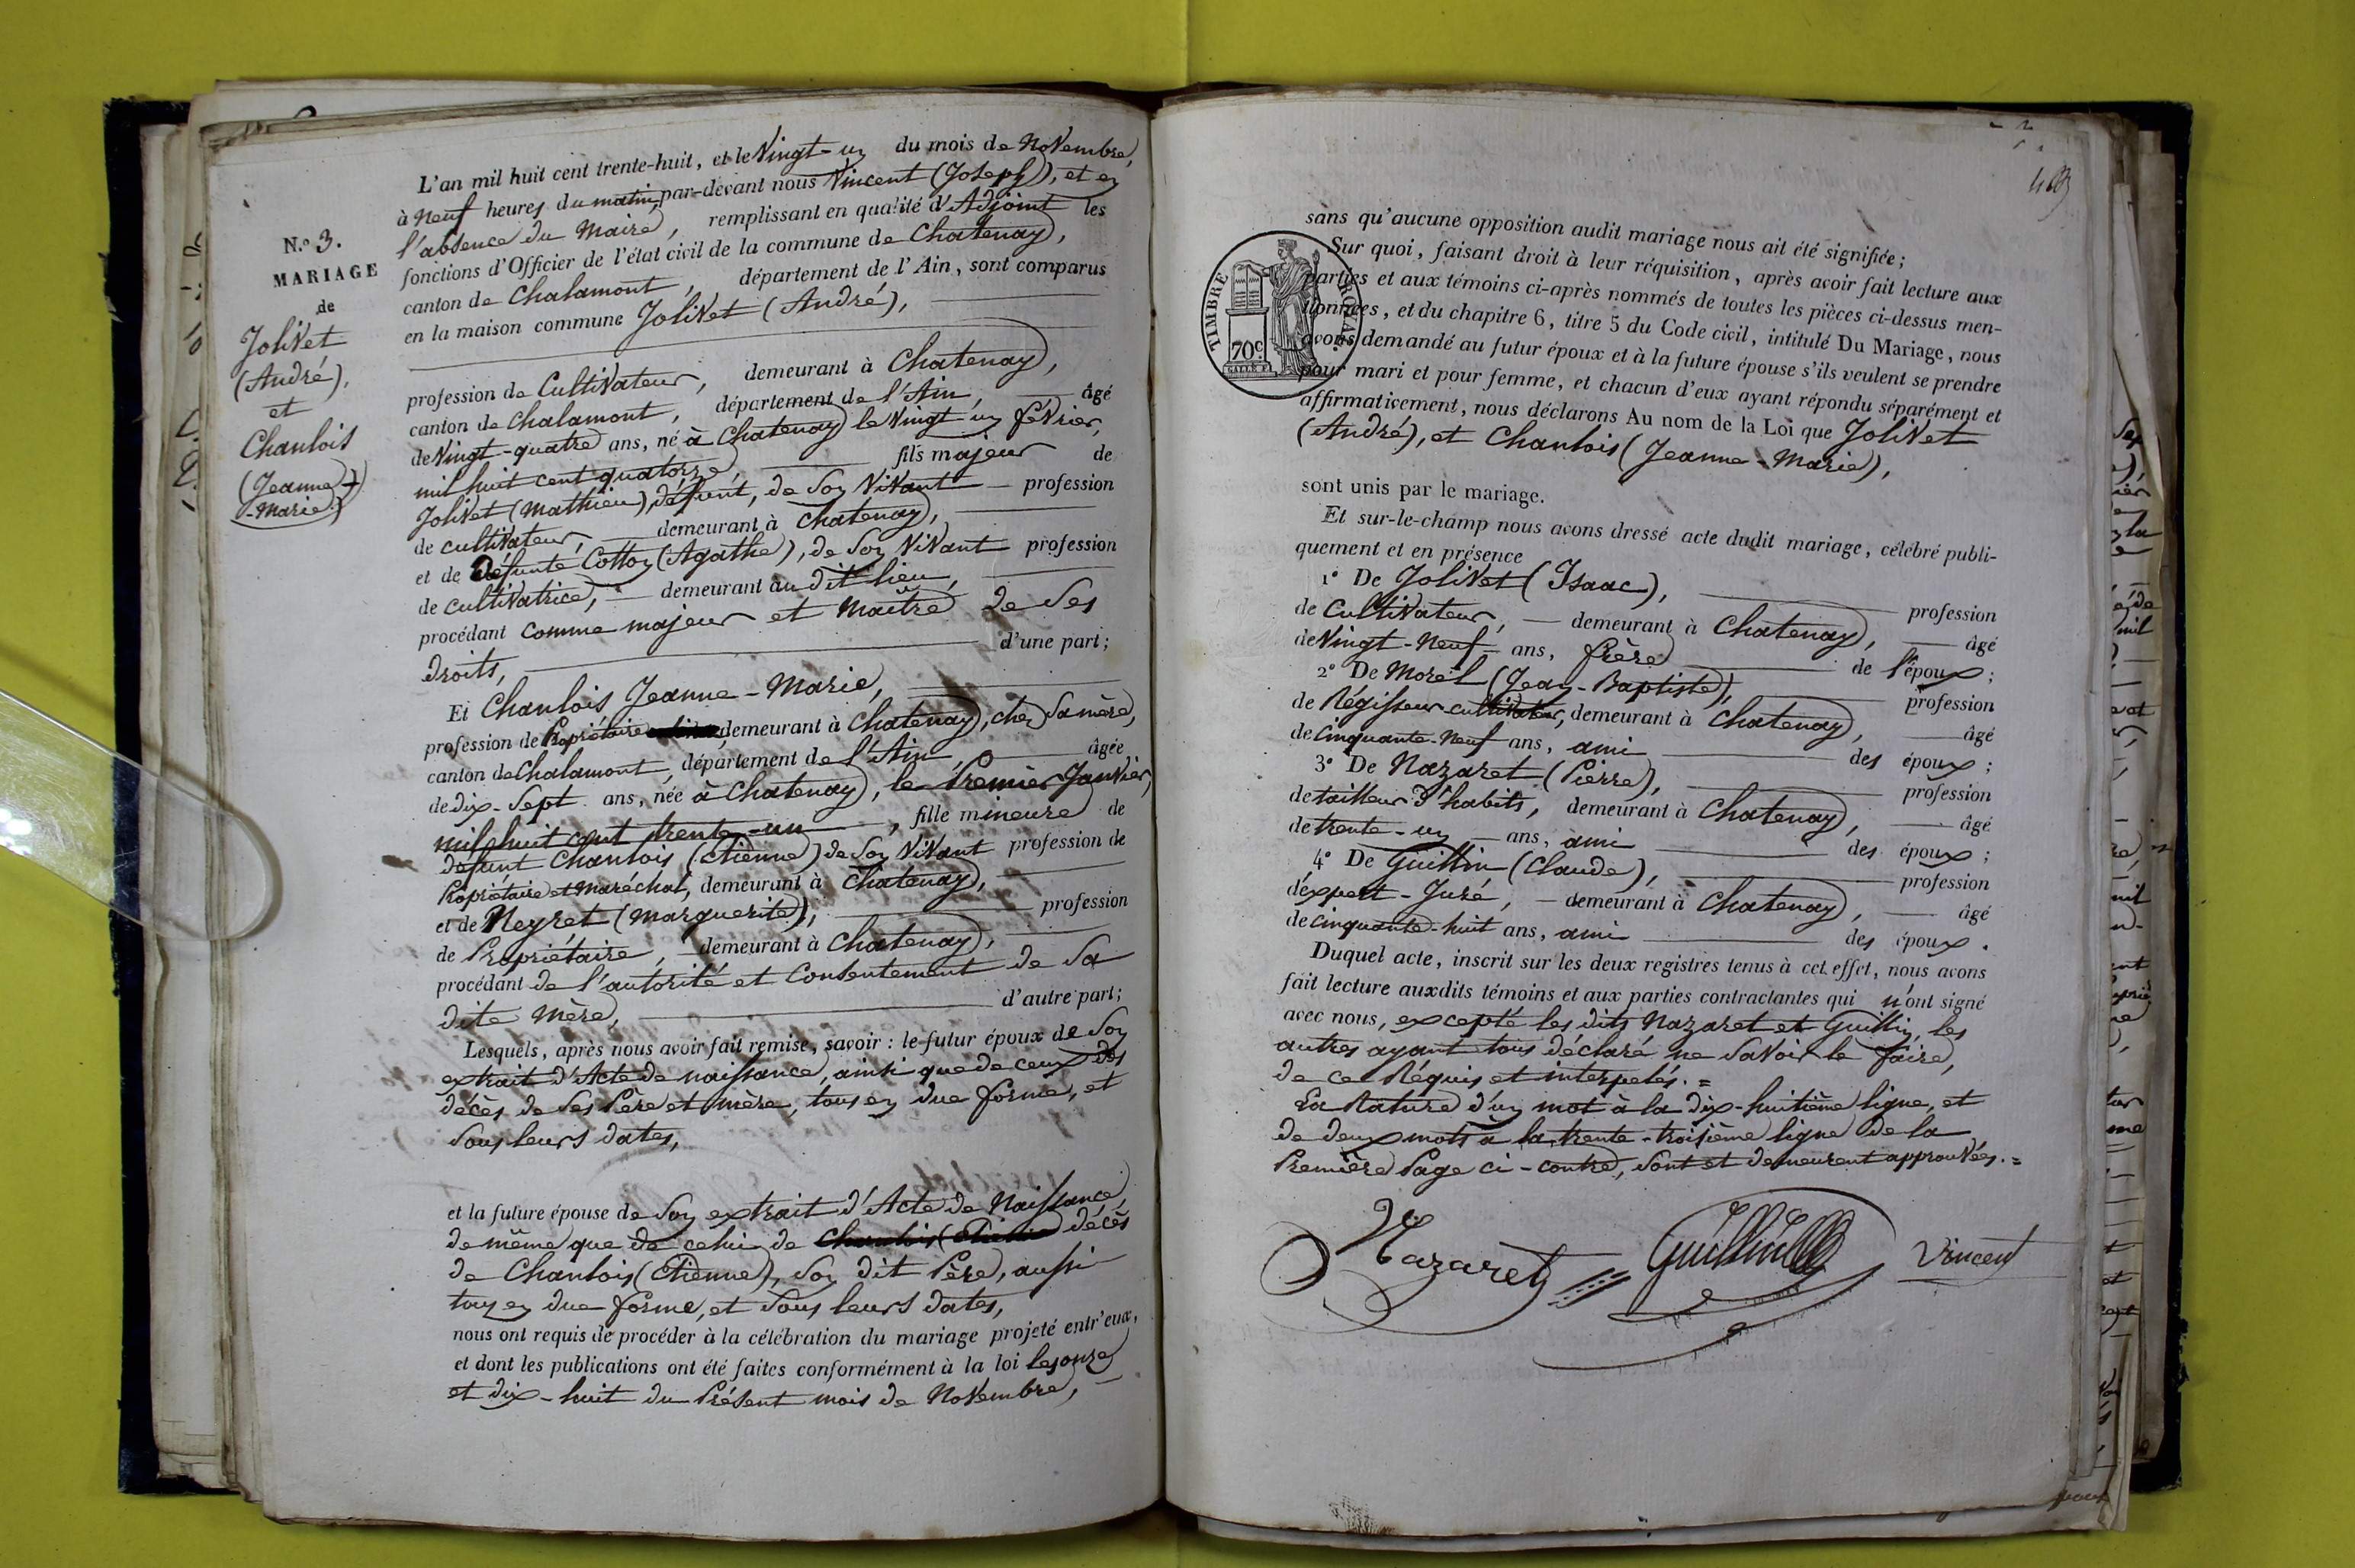 N.º 3.
MARIAGE
de
Jolivet
(André),
et
Chanlois
(Jeanne-
-Marie)
L'an mil huit cent trente-huit, et le Vingt-un du mois de Novembre,
à Neuf heures du matin, par-devant nous Vincent (Joseph), et en
l'absence du Maire, remplissant en qualité d'Adjoint les
fonctions d'Officier de l'état civil de la commune de Chatenay,
canton de Chalamont, département de l'Ain, sont comparus
en la maison commune Jolivet (André),
profession de Cultivateur, demeurant à Chatenay,
canton de Chalamont, département de l'Ain, âgé
de Vingt-quatre ans, né à Chatenay le Vingt un février,
mil huit cent quatorze, fils majeur de
Jolivet (Mathieu), défunt, de Son Vivant profession
de cultivateur, demeurant à Chatenay,
et de défunte Cotton (Agathe), de Son Vivant profession
de cultivatrice, demeurant au dit lieu,
procédant comme majeur et Maître de Ses
droits, d'une part;
Et Chanlois Jeanne-Marie,
profession de Propriétaire demeurant à Chatenay, chez Sa mère,
canton de Chalamont, département de l'Ain, âgée
de dix-Sept ans, née à Chatenay, le Premier Janvier,
mil huit cent trente-un, fille mineure de
défunt Chanlois (Etienne) de Son Vivant profession de
Propriétaire et Maréchal, demeurant à Chatenay,
et de Neyret (Marguerite), profession
de Propriétaire, demeurant à Chatenay,
procédant de l'autorité et Consentement de Sa
dite Mère, d'autre part;
Lesquels, après nous avoir fait remise, savoir: le futur époux de Son
extrait d'Acte de naissance, ainsi que de ceux des
décès de Ses Père et Mère, tous en due forme, et
Sous leurs dates,
et la future épouse de Son extrait d'Acte de Naissance,
de même que de celui de Chanlois (Etienne décès
de Chanlois (Etienne), Son dit Père, aussi
tous en due forme, et Sous leurs dates,
nous ont requis de procéder à la célébration du mariage projeté entr'eux,
et dont les publications ont été faites conformément à la loi les onze
et dix-huit du Présent mois de Novembre,
TIMBRE ROYAL
70c
sans qu'aucune opposition audit mariage nous ait été signifiée;
Sur quoi, faisant droit à leur réquisition, après avoir fait lecture aux
parties et aux témoins ci-après nommés de toutes les pièces ci-dessus men-
tionnées, et du chapitre 6, titre 5 du Code civil, intitulé Du Mariage, nous
avons demandé au futur époux et à la future épouse s'ils veulent se prendre
pour mari et pour femme, et chacun d'eux ayant répondu séparément et
affirmativement, nous déclarons Au nom de la Loi que Jolivet
(André), et Chanlois (Jeanne-Marie),
sont unis par le mariage.
Et sur-le-champ nous avons dressé acte dudit mariage, célébré publi-
quement et en présence
1º De Jolivet (Isaac), profession
de Cultivateur, demeurant à Chatenay, âgé
de Vingt-Neuf ans, frère de l'époux;
2º De Morel (Jean-Baptiste), profession
de Régisseur cultivateur, demeurant à Chatenay, âgé
de Cinquante-Neuf ans, ami des époux;
3º De Nazaret (Pierre), profession
de tailleur d'habits, demeurant à Chatenay, âgé
de trente-un ans, ami des époux;
4º De Guillin (Claude), profession
d'expert-Juré, demeurant à Chatenay, âgé
de Cinquante-huit ans, ami des époux.
Duquel acte, inscrit sur les deux registres tenus à cet effet, nous avons
fait lecture auxdits témoins et aux parties contractantes qui n'ont signé
avec nous, excepté les dits Nazaret et Guillin, les
autres ayant tous déclaré ne Savoir le faire,
de ce Réquis et interpelés.=
La Rature d'un mot à la dix-huitième ligne, et
de deux mots à la trente-troisième ligne de la
Première Page ci-contre, Sont et demeurent approuvées.=
Nazaret Guillin Vincent